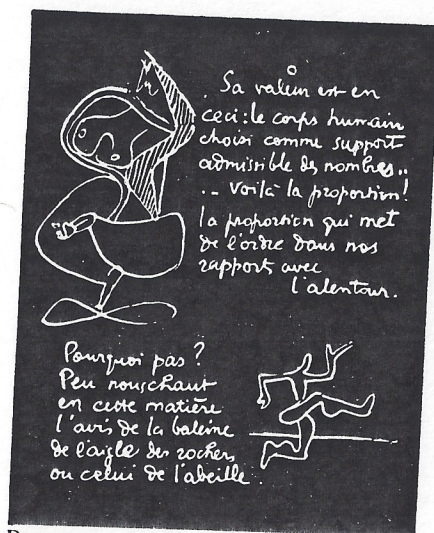 Sa valeur est en
ceci: le corps humain
choisi comme support
admissible des nombres..
.. Voilà la proportion!
la proportion qui met
de l'ordre dans nos
rapports avec
l'alentour.
Pourquoi pas?
Peu nous chaut
en cette matière
l'avis de la baleine
de l'aigle des rochers
ou celui de l'abeille.